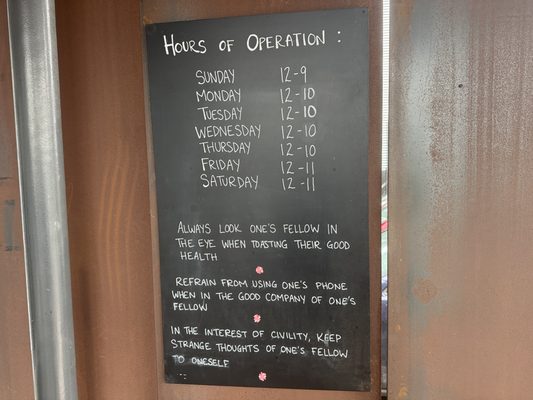 HOURS OF OPERATION :
SUNDAY 12-9
MONDAY 12-10
TUESDAY 12-10
WEDNESDAY 12-10
THURSDAY 12-10
FRIDAY 12-11
SATURDAY 12-11
ALWAYS LOOK ONE'S FELLOW IN
THE EYE WHEN TOASTING THEIR GOOD
HEALTH
REFRAIN FROM USING ONE'S PHONE
WHEN IN THE GOOD COMPANY OF ONE'S
FELLOW
IN THE INTEREST OF CIVILITY, KEEP
STRANGE THOUGHTS OF ONE'S FELLOW
TO ONESELF